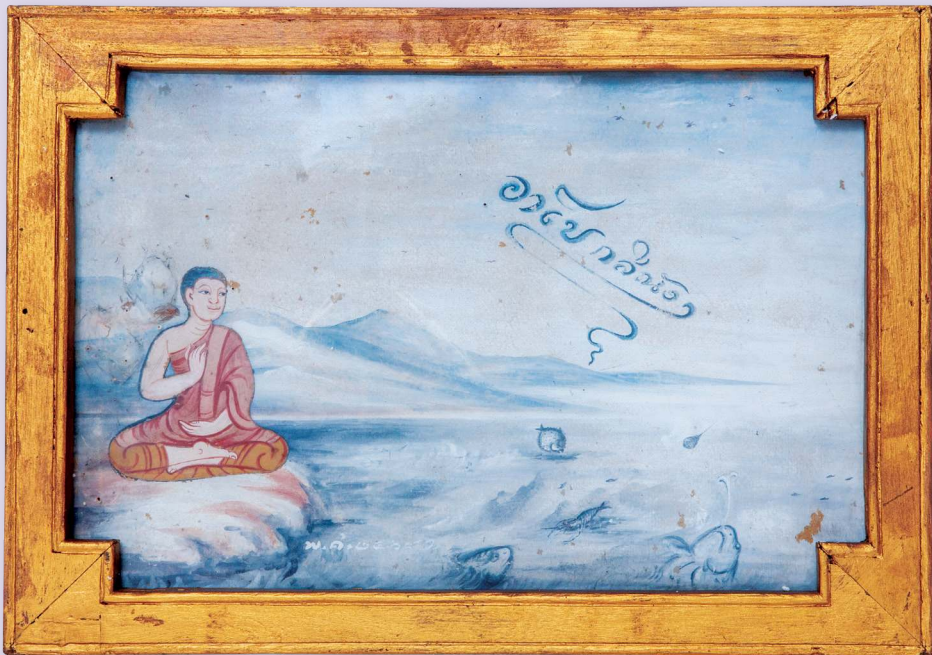 อาโปกสิณัง
พ.ศ.